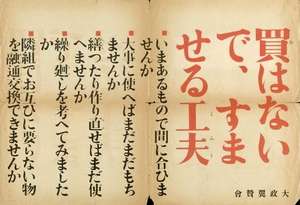 買はない
で、すま
せる工夫
■いまあるもので間に合ひま
せんか
■大事に使へばまだまだもち
ませんか
■繕つたり作り直せばまだ使
へませんか
■繰り廻しを考へてみました
か
■隣組でお互ひに要らない物
を融通交換できませんか
大政翼贊會